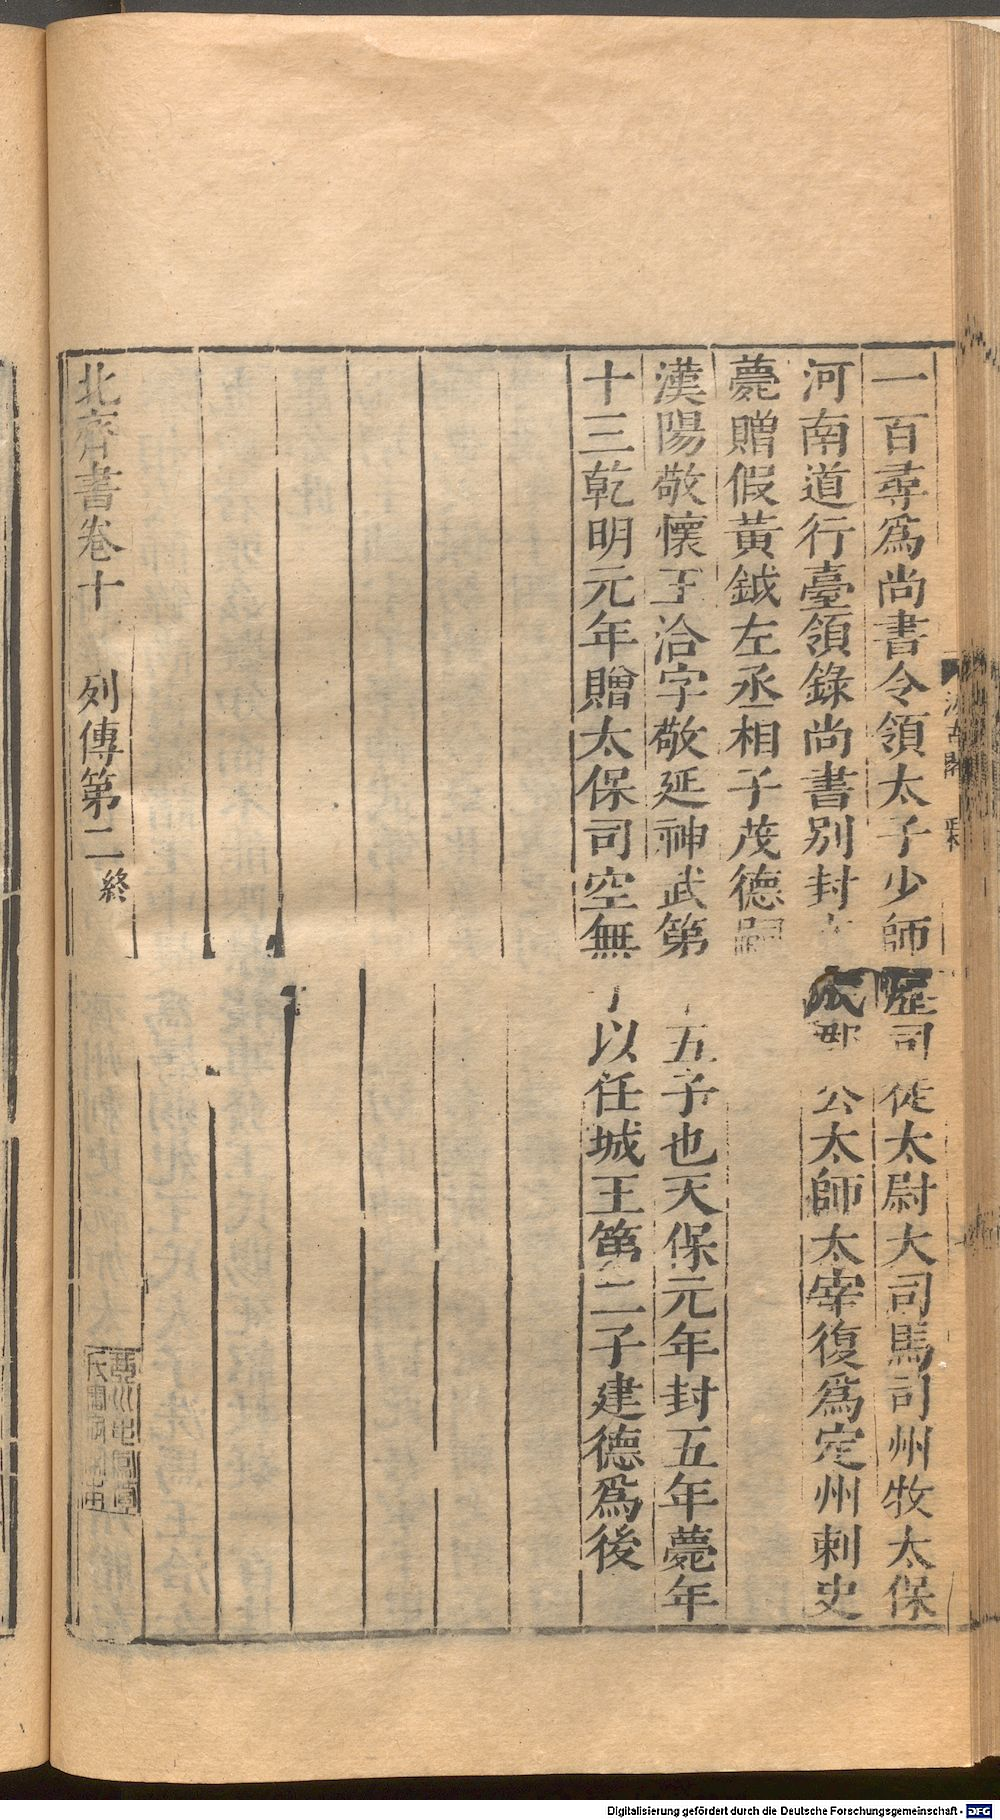 一百尋爲尚書令領太子少師歷司徒太尉大司馬司州牧太保
河南道行臺領錄尚書別封 公太師太宰復爲定州刺史
薨贈假黃鉞左丞相子茂德嗣
漢陽敬懷王洽字敬延神武第 五子也天保元年封五年薨年
十三乾明元年贈太保司空無 以任城王第二子建德爲後
北齊書卷十 列傳第二終
Digitalisierung gefördert durch die Deutsche Forschungsgemeinschaft - DFG